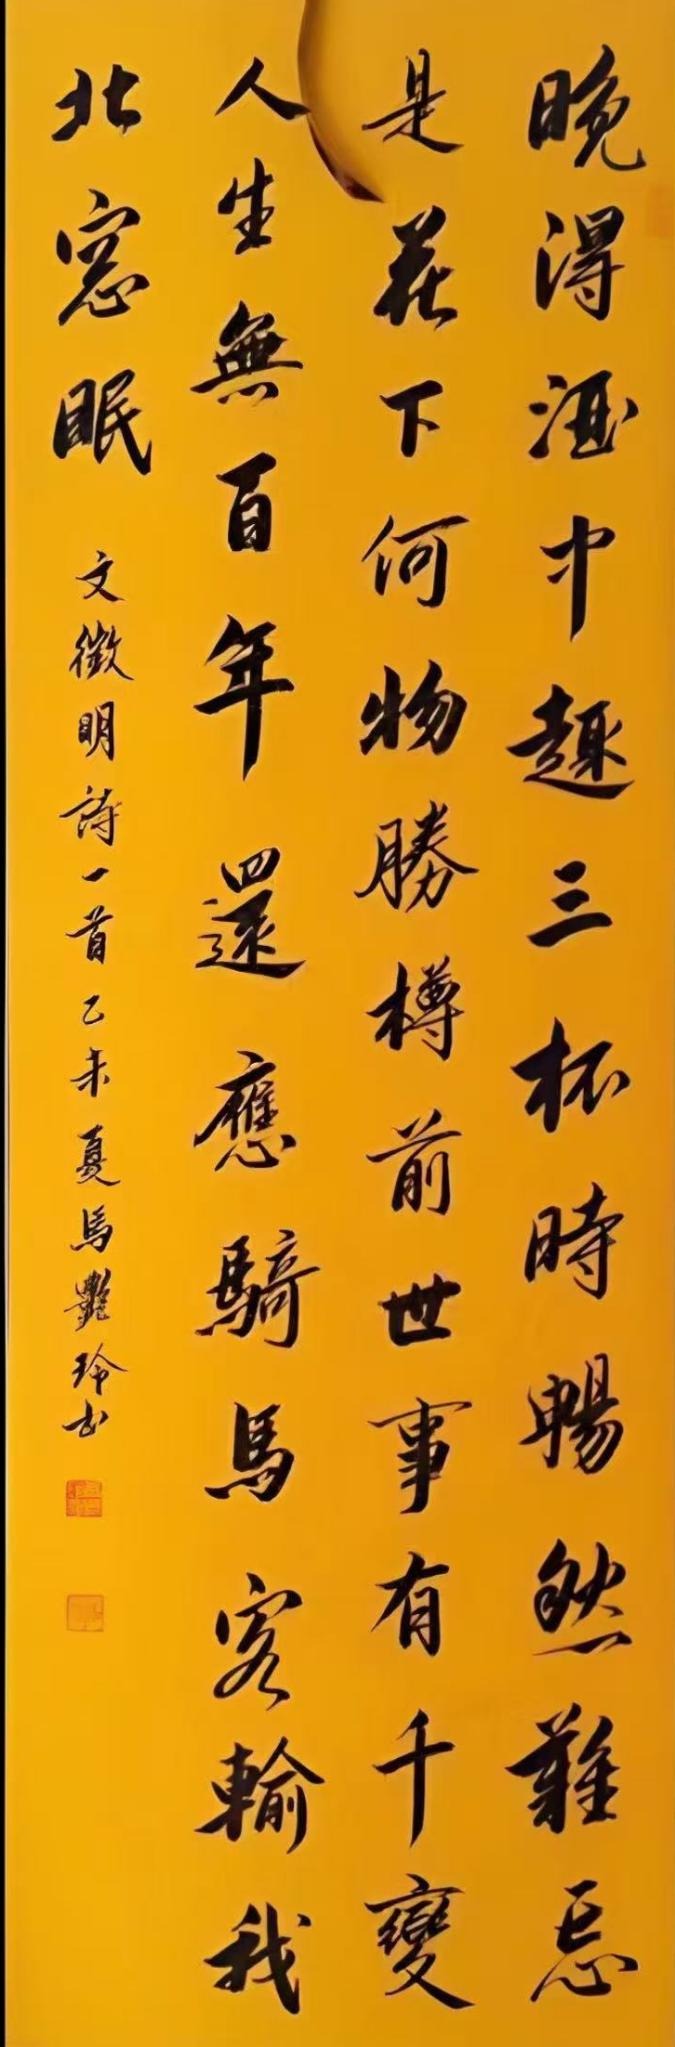 晚得酒中趣三杯時暢然難忘
是花下何物勝樽前世事有千變
人生無百年還應騎馬客輸我
北窓眠
文徵明詩一首乙未夏馬艷玲书